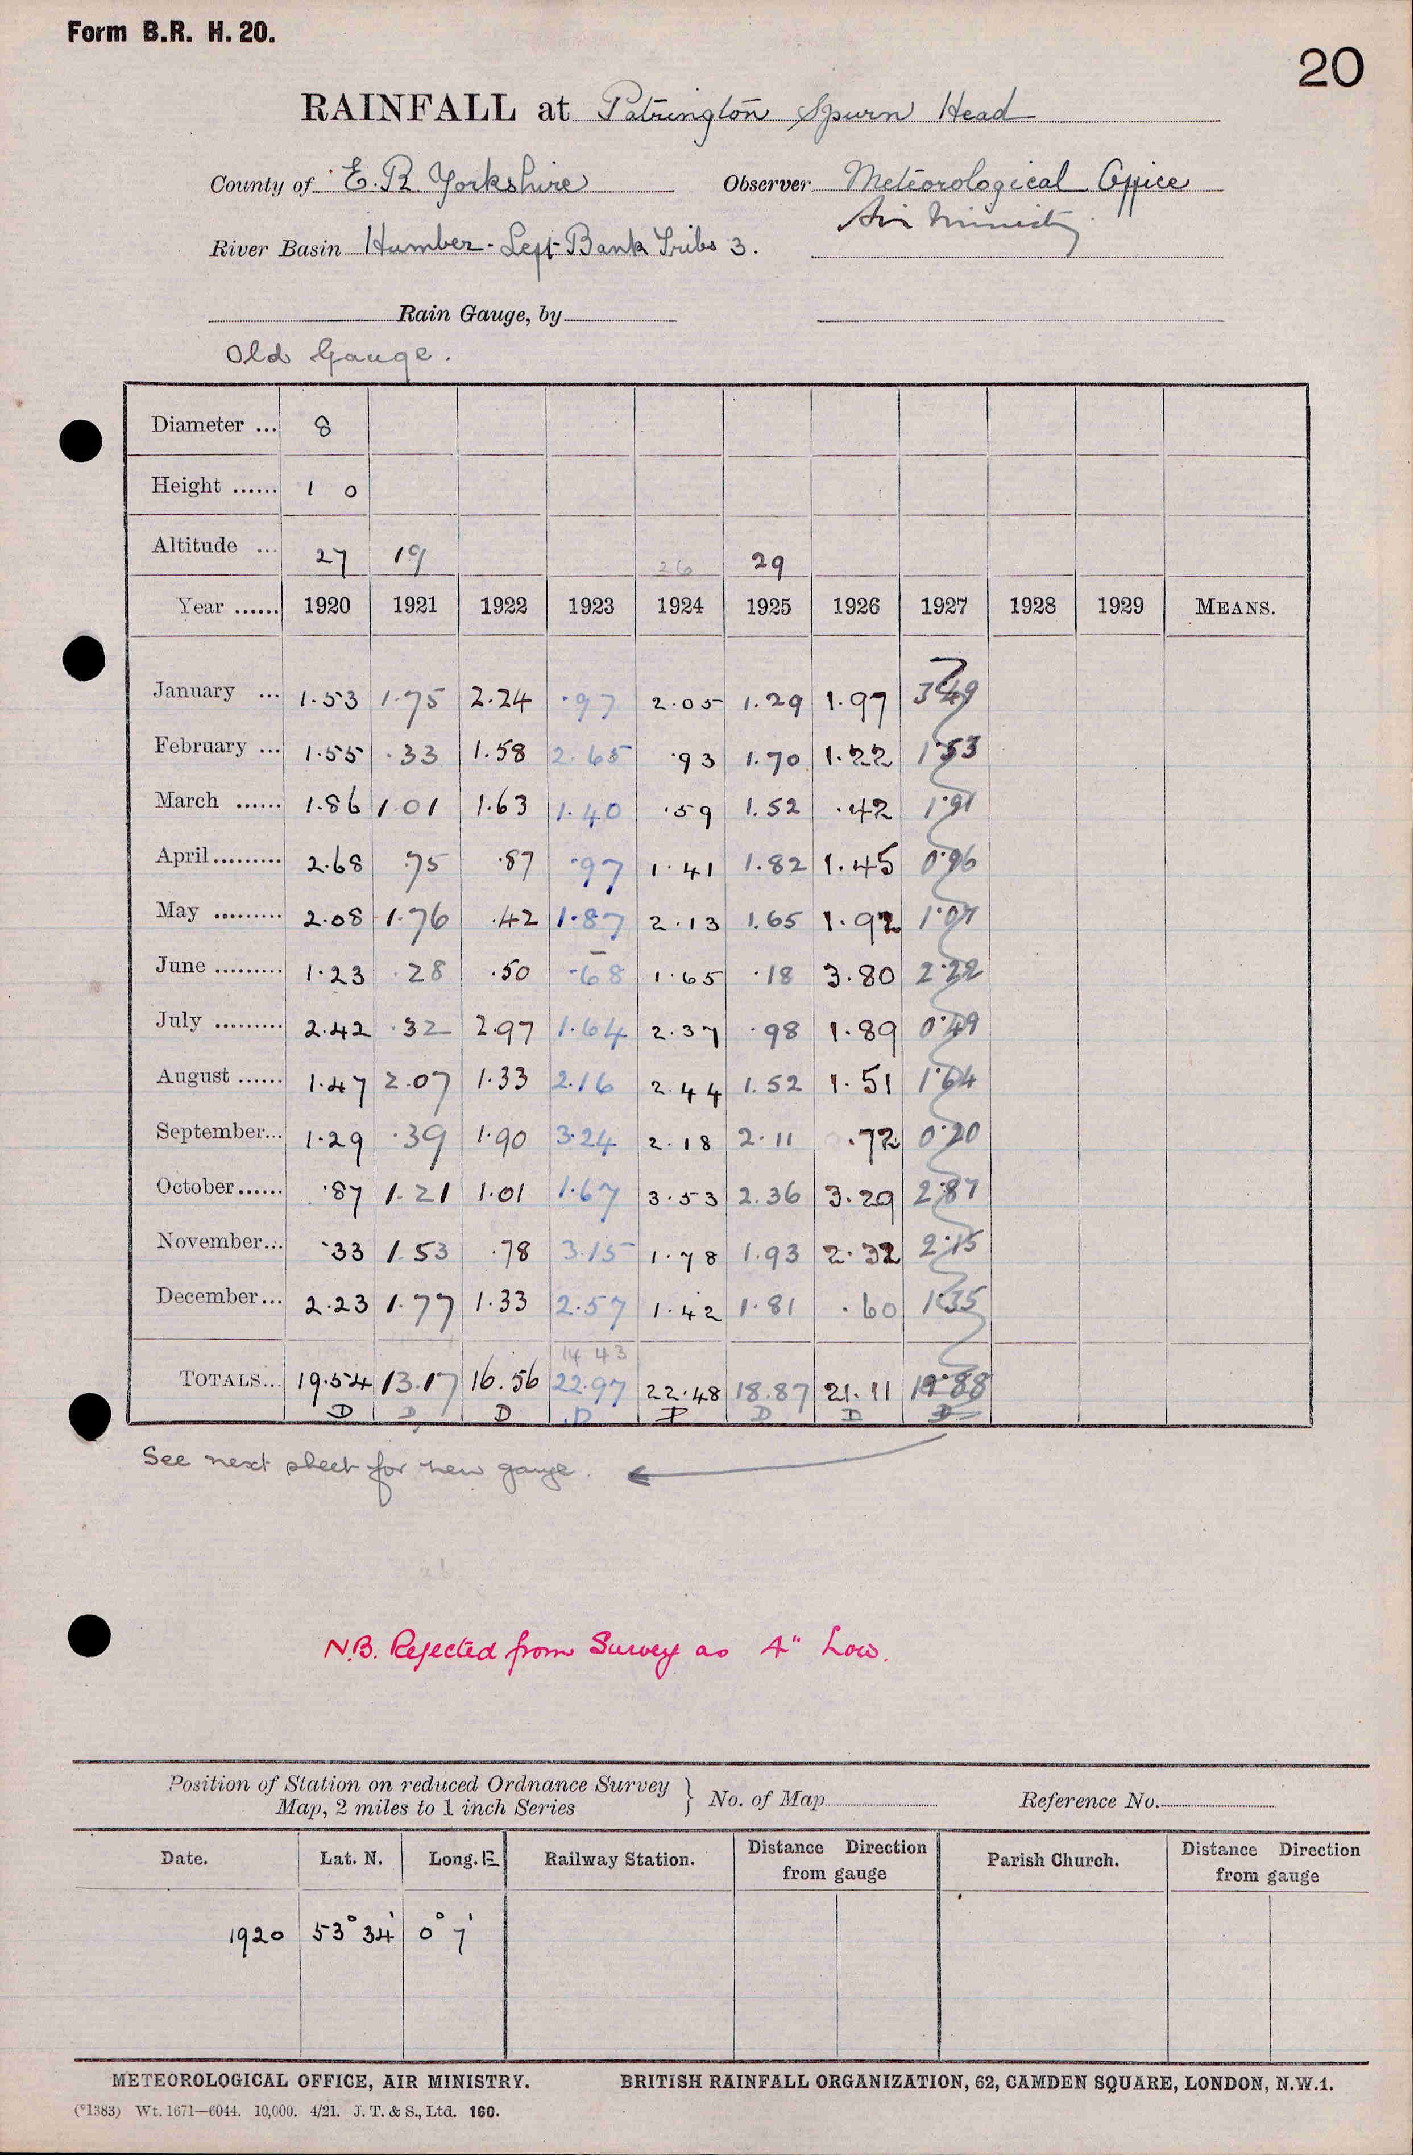 Form B.R. H. 20.
20
RAINFALL at Patrington Spurn Head
County of E.R Yorkshire Observer Meteorological Office
Air Ministry
River Basin Humber - Left Bank Tribs 3.
Rain Gauge, by
Old Gauge.
Diameter ... 8
Height ...... 1 0
Altitude ... 27 19 26 29
Year ...... 1920 1921 1922 1923 1924 1925 1926 1927 1928 1929 MEANS.
January ... 1.53 1.75 2.24 .97 2.05 1.29 1.97 3.49
February ... 1.55 .33 1.58 2.65 .93 1.70 1.22 1.53
March ...... 1.86 1 01 1.63 1.40 .59 1.52 .42 1.91
April ......... 2.68 .75 .87 .97 1.41 1.82 1.45 0.96
May ......... 2.08 1.76 .42 1.87 2.13 1.65 1.92 1.07
June ......... 1.23 .28 .50 .68 1.65 .18 3.80 2.22
July ......... 2.42 .32 2.97 1.64 2.37 .98 1.89 0.49
August ...... 1.47 2.07 1.33 2.16 2.44 1.52 1.51 1.64
September... 1.29 .39 1.90 3.24 2.18 2.11 .72 0.20
October...... .87 1.21 1.01 1.67 3.53 2.36 3.29 2.87
November... .33 1.53 .78 3.15 1.78 1.93 2.32 2.15
December... 2.23 1.77 1.33 2.57 1.42 1.81 .60 1.35
14 43
TOTALS... 19.54 13.17 16.56 22.97 22.48 18.87 21.11 19.88
D D D D D D D D
See next sheet for new gauge.
N.B. Rejected from Survey as 4" Low.
Position of Station on reduced Ordnance Survey
Map, 2 miles to 1 inch Series } No. of Map Reference No.
Date. Lat. N. Long. E Railway Station. Distance Direction from gauge Parish Church. Distance Direction from gauge
1920 53° 34' 0° 7'
METEOROLOGICAL OFFICE, AIR MINISTRY. BRITISH RAINFALL ORGANIZATION, 62, CAMDEN SQUARE, LONDON, N.W.1.
(*1383) Wt. 1671—6044. 10,000. 4/21. J. T. & S., Ltd. 160.